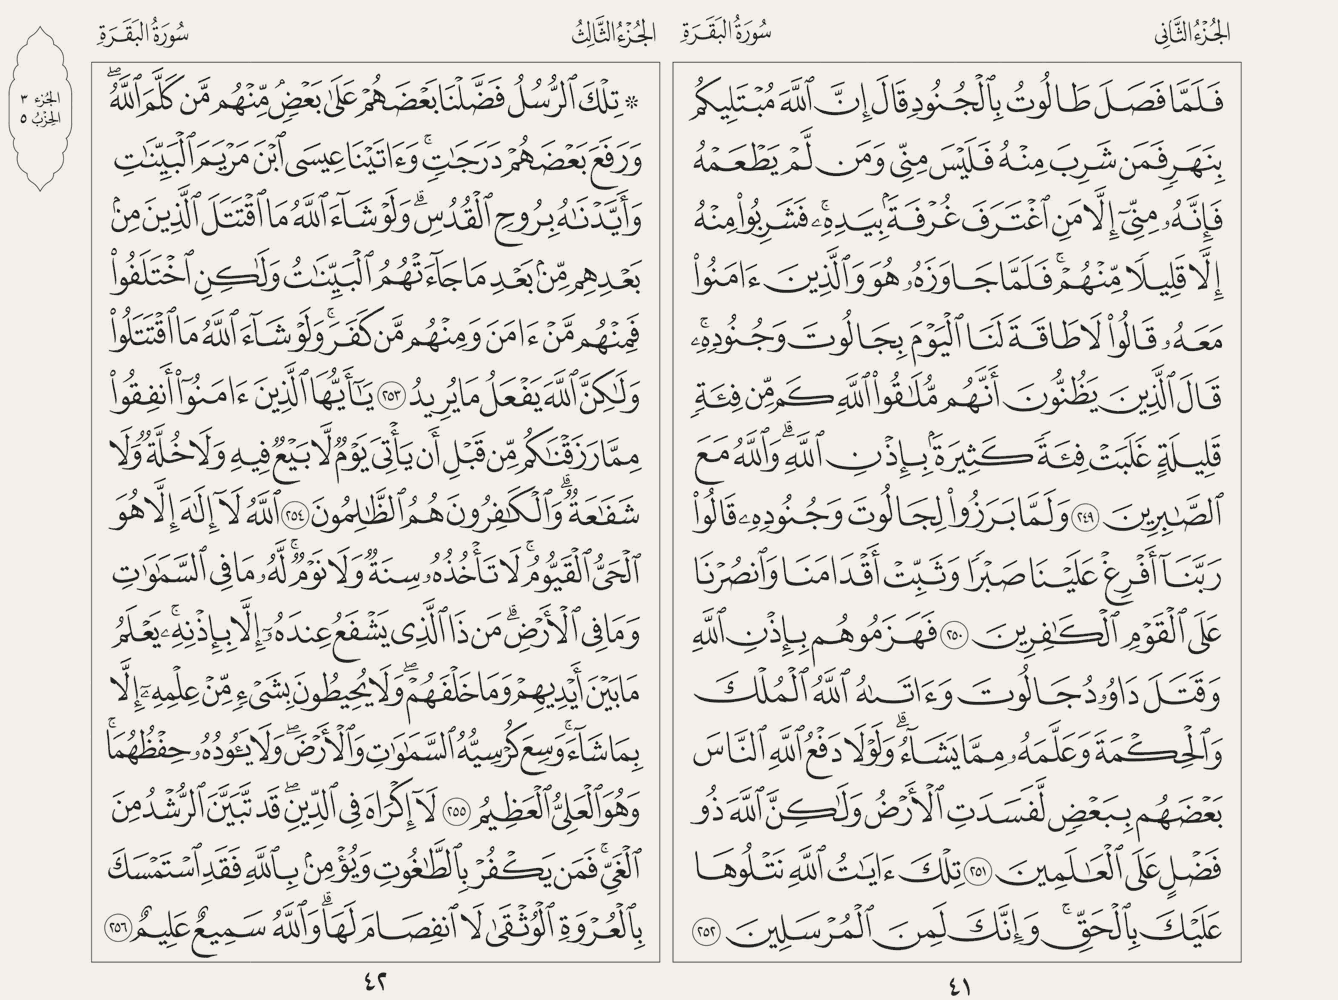 الجُزْءُ الثَّانِي
سُورَةُ البَقَرَةِ
فَلَمَّا فَصَلَ طَالُوتُ بِٱلْجُنُودِ قَالَ إِنَّ ٱللَّهَ مُبْتَلِيكُم
بِنَهَرٍ فَمَن شَرِبَ مِنْهُ فَلَيْسَ مِنِّي وَمَن لَّمْ يَطْعَمْهُ
فَإِنَّهُۥ مِنِّيٓ إِلَّا مَنِ ٱغْتَرَفَ غُرْفَةَۢ بِيَدِهِۦۚ فَشَرِبُوا۟ مِنْهُ
إِلَّا قَلِيلًا مِّنْهُمْۚ فَلَمَّا جَاوَزَهُۥ هُوَ وَٱلَّذِينَ ءَامَنُوا۟
مَعَهُۥ قَالُوا۟ لَا طَاقَةَ لَنَا ٱلْيَوْمَ بِجَالُوتَ وَجُنُودِهِۦۚ
قَالَ ٱلَّذِينَ يَظُنُّونَ أَنَّهُم مُّلَٰقُوا۟ ٱللَّهِ كَم مِّن فِئَةٍ
قَلِيلَةٍ غَلَبَتْ فِئَةً كَثِيرَةَۢ بِإِذْنِ ٱللَّهِۗ وَٱللَّهُ مَعَ
ٱلصَّٰبِرِينَ ٢٤٩ وَلَمَّا بَرَزُوا۟ لِجَالُوتَ وَجُنُودِهِۦ قَالُوا۟
رَبَّنَآ أَفْرِغْ عَلَيْنَا صَبْرًا وَثَبِّتْ أَقْدَامَنَا وَٱنصُرْنَا
عَلَى ٱلْقَوْمِ ٱلْكَٰفِرِينَ ٢٥٠ فَهَزَمُوهُم بِإِذْنِ ٱللَّهِ
وَقَتَلَ دَاوُۥدُ جَالُوتَ وَءَاتَىٰهُ ٱللَّهُ ٱلْمُلْكَ
وَٱلْحِكْمَةَ وَعَلَّمَهُۥ مِمَّا يَشَآءُۗ وَلَوْلَا دَفْعُ ٱللَّهِ ٱلنَّاسَ
بَعْضَهُم بِبَعْضٍ لَّفَسَدَتِ ٱلْأَرْضُ وَلَٰكِنَّ ٱللَّهَ ذُو
فَضْلٍ عَلَى ٱلْعَٰلَمِينَ ٢٥١ تِلْكَ ءَايَٰتُ ٱللَّهِ نَتْلُوهَا
عَلَيْكَ بِٱلْحَقِّۚ وَإِنَّكَ لَمِنَ ٱلْمُرْسَلِينَ ٢٥٢
٤١
الجُزْءُ الثَّالِثُ
سُورَةُ البَقَرَةِ
۞ تِلْكَ ٱلرُّسُلُ فَضَّلْنَا بَعْضَهُمْ عَلَىٰ بَعْضٍۘ مِّنْهُم مَّن كَلَّمَ ٱللَّهُۖ
وَرَفَعَ بَعْضَهُمْ دَرَجَٰتٍۚ وَءَاتَيْنَا عِيسَى ٱبْنَ مَرْيَمَ ٱلْبَيِّنَٰتِ
وَأَيَّدْنَٰهُ بِرُوحِ ٱلْقُدُسِۗ وَلَوْ شَآءَ ٱللَّهُ مَا ٱقْتَتَلَ ٱلَّذِينَ مِنۢ
بَعْدِهِم مِّنۢ بَعْدِ مَا جَآءَتْهُمُ ٱلْبَيِّنَٰتُ وَلَٰكِنِ ٱخْتَلَفُوا۟
فَمِنْهُم مَّنْ ءَامَنَ وَمِنْهُم مَّن كَفَرَۚ وَلَوْ شَآءَ ٱللَّهُ مَا ٱقْتَتَلُوا۟
وَلَٰكِنَّ ٱللَّهَ يَفْعَلُ مَا يُرِيدُ ٢٥٣ يَٰٓأَيُّهَا ٱلَّذِينَ ءَامَنُوٓا۟ أَنفِقُوا۟
مِمَّا رَزَقْنَٰكُم مِّن قَبْلِ أَن يَأْتِيَ يَوْمٌ لَّا بَيْعٌ فِيهِ وَلَا خُلَّةٌ وَلَا
شَفَٰعَةٌۗ وَٱلْكَٰفِرُونَ هُمُ ٱلظَّٰلِمُونَ ٢٥٤ ٱللَّهُ لَآ إِلَٰهَ إِلَّا هُوَ
ٱلْحَيُّ ٱلْقَيُّومُۚ لَا تَأْخُذُهُۥ سِنَةٌ وَلَا نَوْمٌۚ لَّهُۥ مَا فِي ٱلسَّمَٰوَٰتِ
وَمَا فِي ٱلْأَرْضِۗ مَن ذَا ٱلَّذِي يَشْفَعُ عِندَهُۥٓ إِلَّا بِإِذْنِهِۦۚ يَعْلَمُ
مَا بَيْنَ أَيْدِيهِمْ وَمَا خَلْفَهُمْۖ وَلَا يُحِيطُونَ بِشَيْءٍ مِّنْ عِلْمِهِۦٓ إِلَّا
بِمَا شَآءَۚ وَسِعَ كُرْسِيُّهُ ٱلسَّمَٰوَٰتِ وَٱلْأَرْضَۖ وَلَا يَـُٔودُهُۥ حِفْظُهُمَاۚ
وَهُوَ ٱلْعَلِيُّ ٱلْعَظِيمُ ٢٥٥ لَآ إِكْرَاهَ فِي ٱلدِّينِۖ قَد تَّبَيَّنَ ٱلرُّشْدُ مِنَ
ٱلْغَيِّۚ فَمَن يَكْفُرْ بِٱلطَّٰغُوتِ وَيُؤْمِنۢ بِٱللَّهِ فَقَدِ ٱسْتَمْسَكَ
بِٱلْعُرْوَةِ ٱلْوُثْقَىٰ لَا ٱنفِصَامَ لَهَاۗ وَٱللَّهُ سَمِيعٌ عَلِيمٌ ٢٥٦
٤٢
الجُزْء ٣
الحِزْبُ ٥